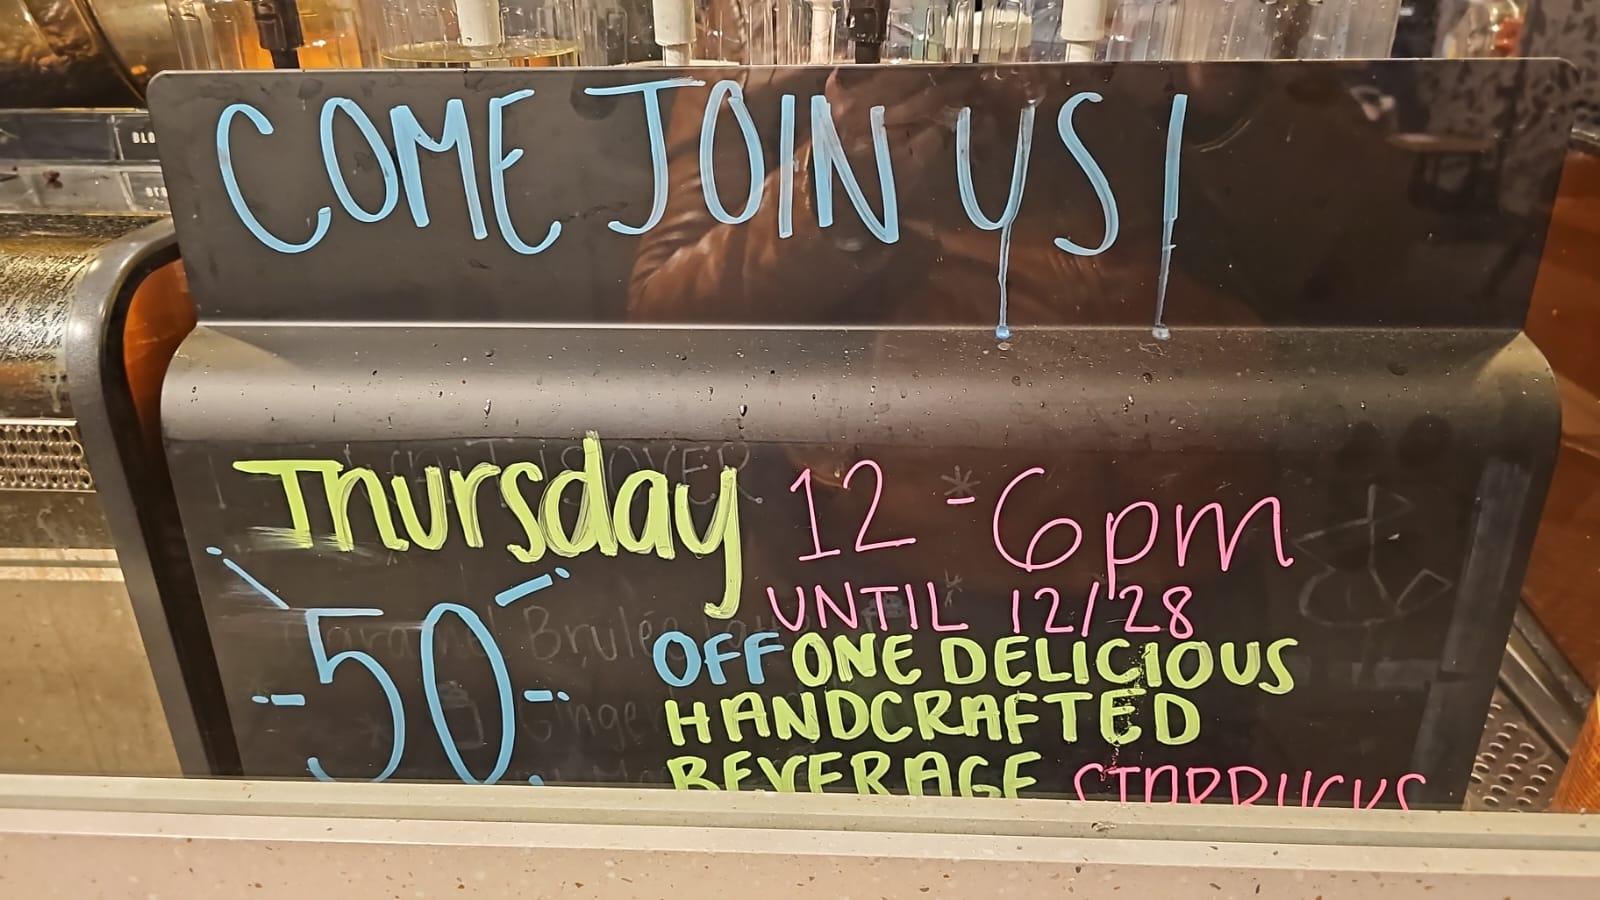 COME JOIN US!
Thursday 12-6pm
UNTIL 12/28
50 OFF ONE DELICIOUS
HANDCRAFTED
BEVERAGE STARBUCKS
Caramel Brulée
Ginger